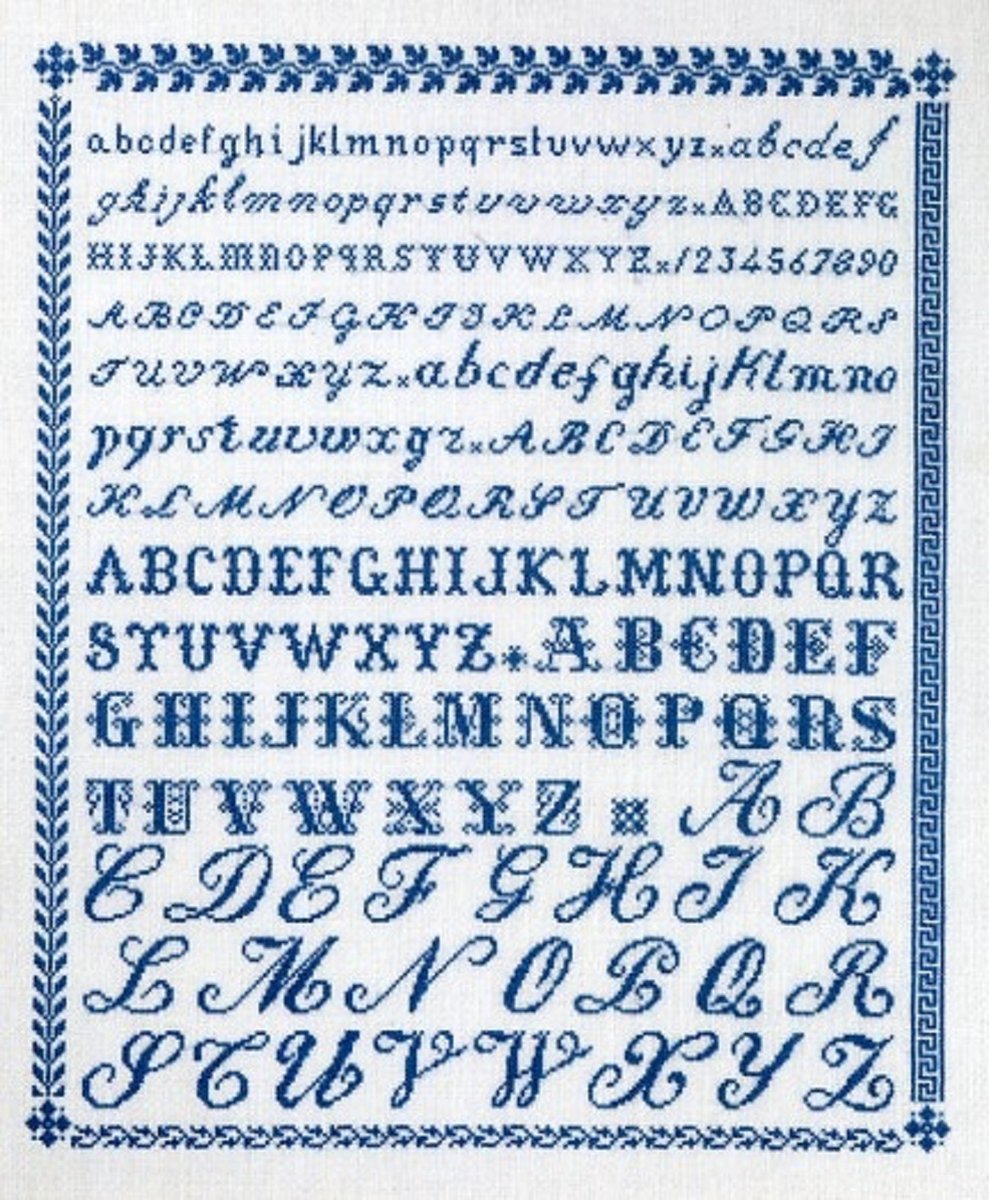 abcdefghijklmnopqrstuvwxyz×abcdef
ghijklmnopqrstuvwxyz×ABCDEFG
HIJKLMNOPQRSTUVWXYZ×1234567890
ABCDEFGHIJKLMNOPQRS
TUVWXYZ×abcdefghijklmno
pqrstuvwxyz×ABCDEFGHI
KLMNOPQRSTUVWXYZ
ABCDEFGHIJKLMNOPQR
STUVWXYZ*ABCDEF
GHIJKLMNOPQRS
TUVWXYZ AB
CDEFGHIK
LMNOPQR
STUVWXYZ